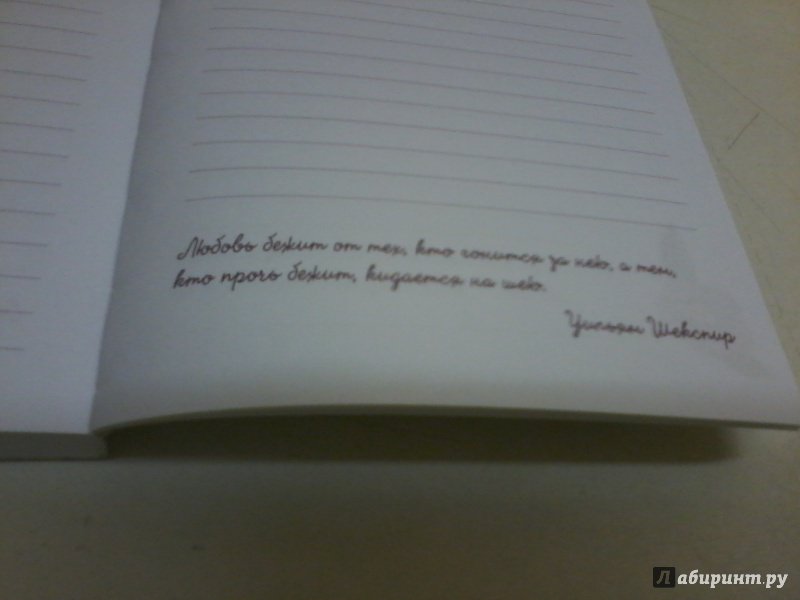 Любовь бежит от тех, кто гонится за нею, а тем,
кто прочь бежит, кидается на шею.
Уильям Шекспир
Лабиринт.ру